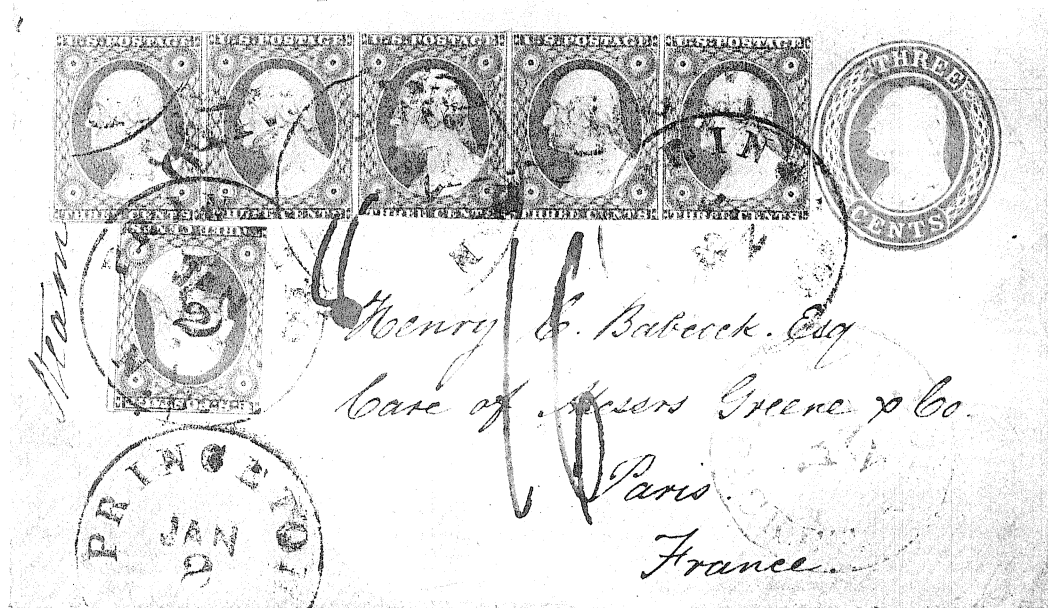 U.S. POSTAGE U.S. POSTAGE U.S. POSTAGE U.S. POSTAGE U.S. POSTAGE
THREE CENTS THREE CENTS THREE CENTS THREE CENTS THREE CENTS
THREE
CENTS
Steam
Henry C. Babcock. Esq
Care of Messrs Greene & Co.
Paris.
France.
PRINCETON
JAN
9